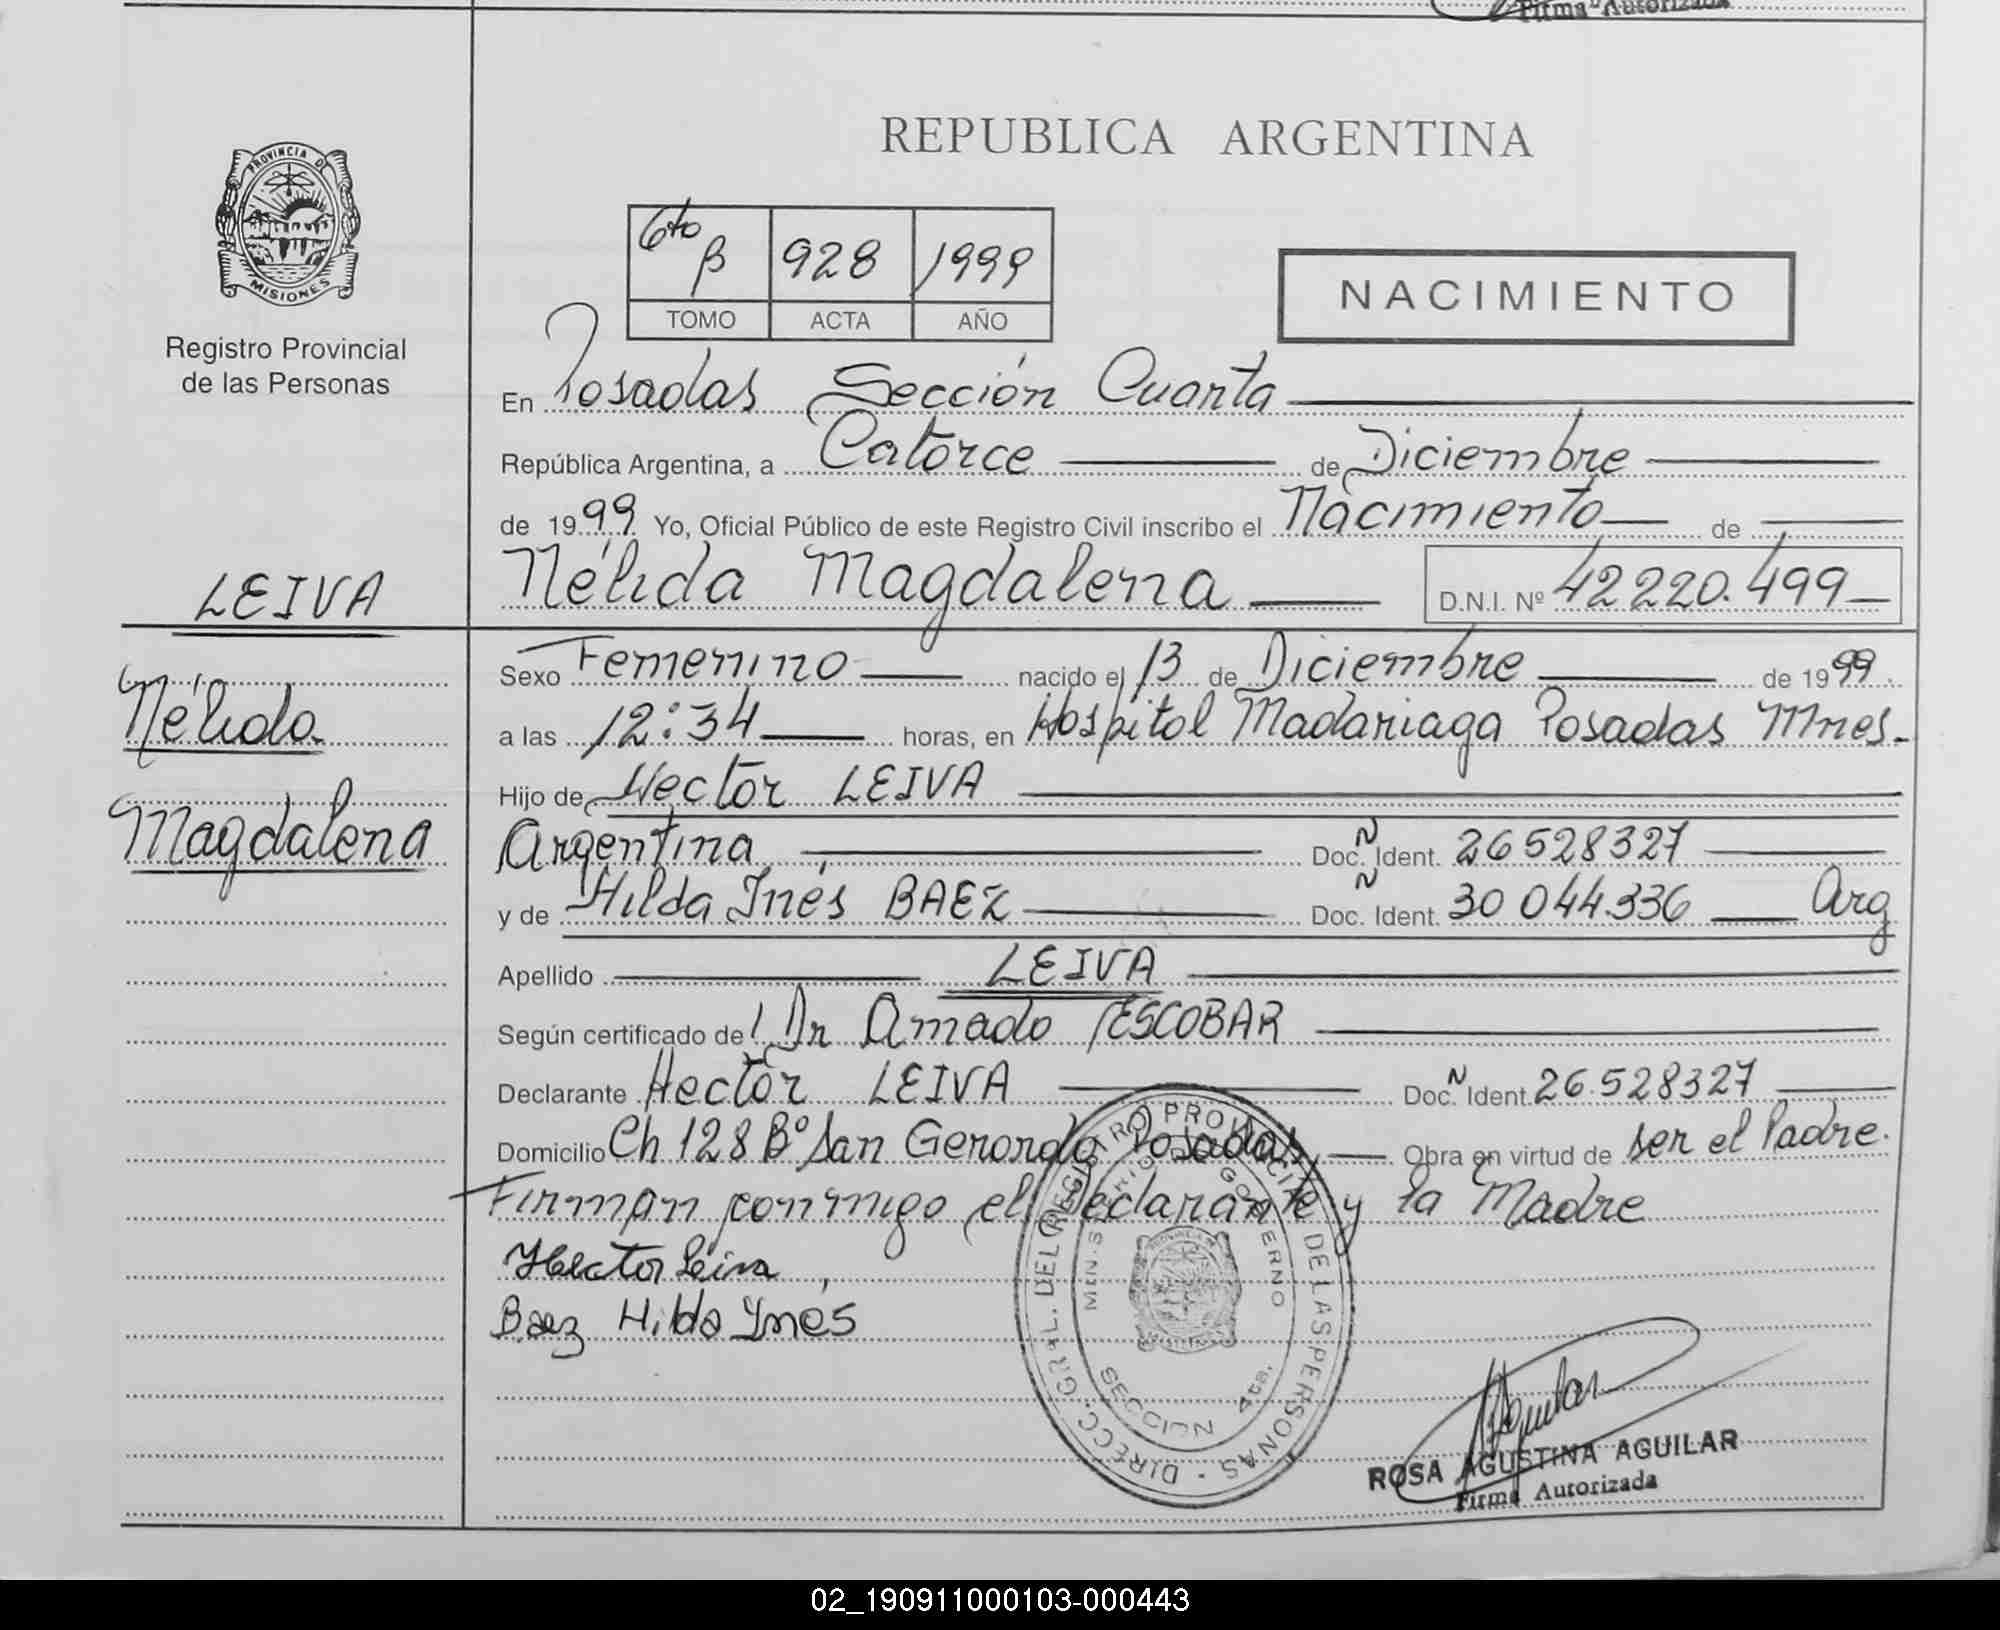 Firma Autorizada
REPUBLICA ARGENTINA
PROVINCIA DE
MISIONES
Registro Provincial
de las Personas
6to β 928 1999
TOMO ACTA AÑO
NACIMIENTO
En Posadas Sección Cuarta
República Argentina, a Catorce de Diciembre
de 1999 Yo, Oficial Público de este Registro Civil inscribo el Nacimiento de
Nélida Magdalena D.N.I. Nº 42220.499
LEIVA
Nélida
Magdalena
Sexo Femenino nacido el 13 de Diciembre de 1999
a las 12:34 horas, en Hospital Madariaga Posadas Mnes.
Hijo de Hector LEIVA
Argentina Doc. N Ident. 26528327
y de Hilda Inés BAEZ Doc. N Ident. 30 044.336 Arg
Apellido LEIVA
Según certificado de Dr Amado ESCOBAR
Declarante Hector LEIVA Doc. N Ident. 26.528327
Domicilio Ch 128 Bº San Gerardo Posadas, Obra en virtud de ser el Padre.
Firman conmigo el declarante y la Madre
Hector Leiva
Baez Hilda Ynés
DIRECC. GRAL. DEL REGISTRO PROVINCIAL DE LAS PERSONAS
MINISTERIO DE GOBIERNO
SECCION 4ta.
Aguilar
ROSA AGUSTINA AGUILAR
Firma Autorizada
02_190911000103-000443